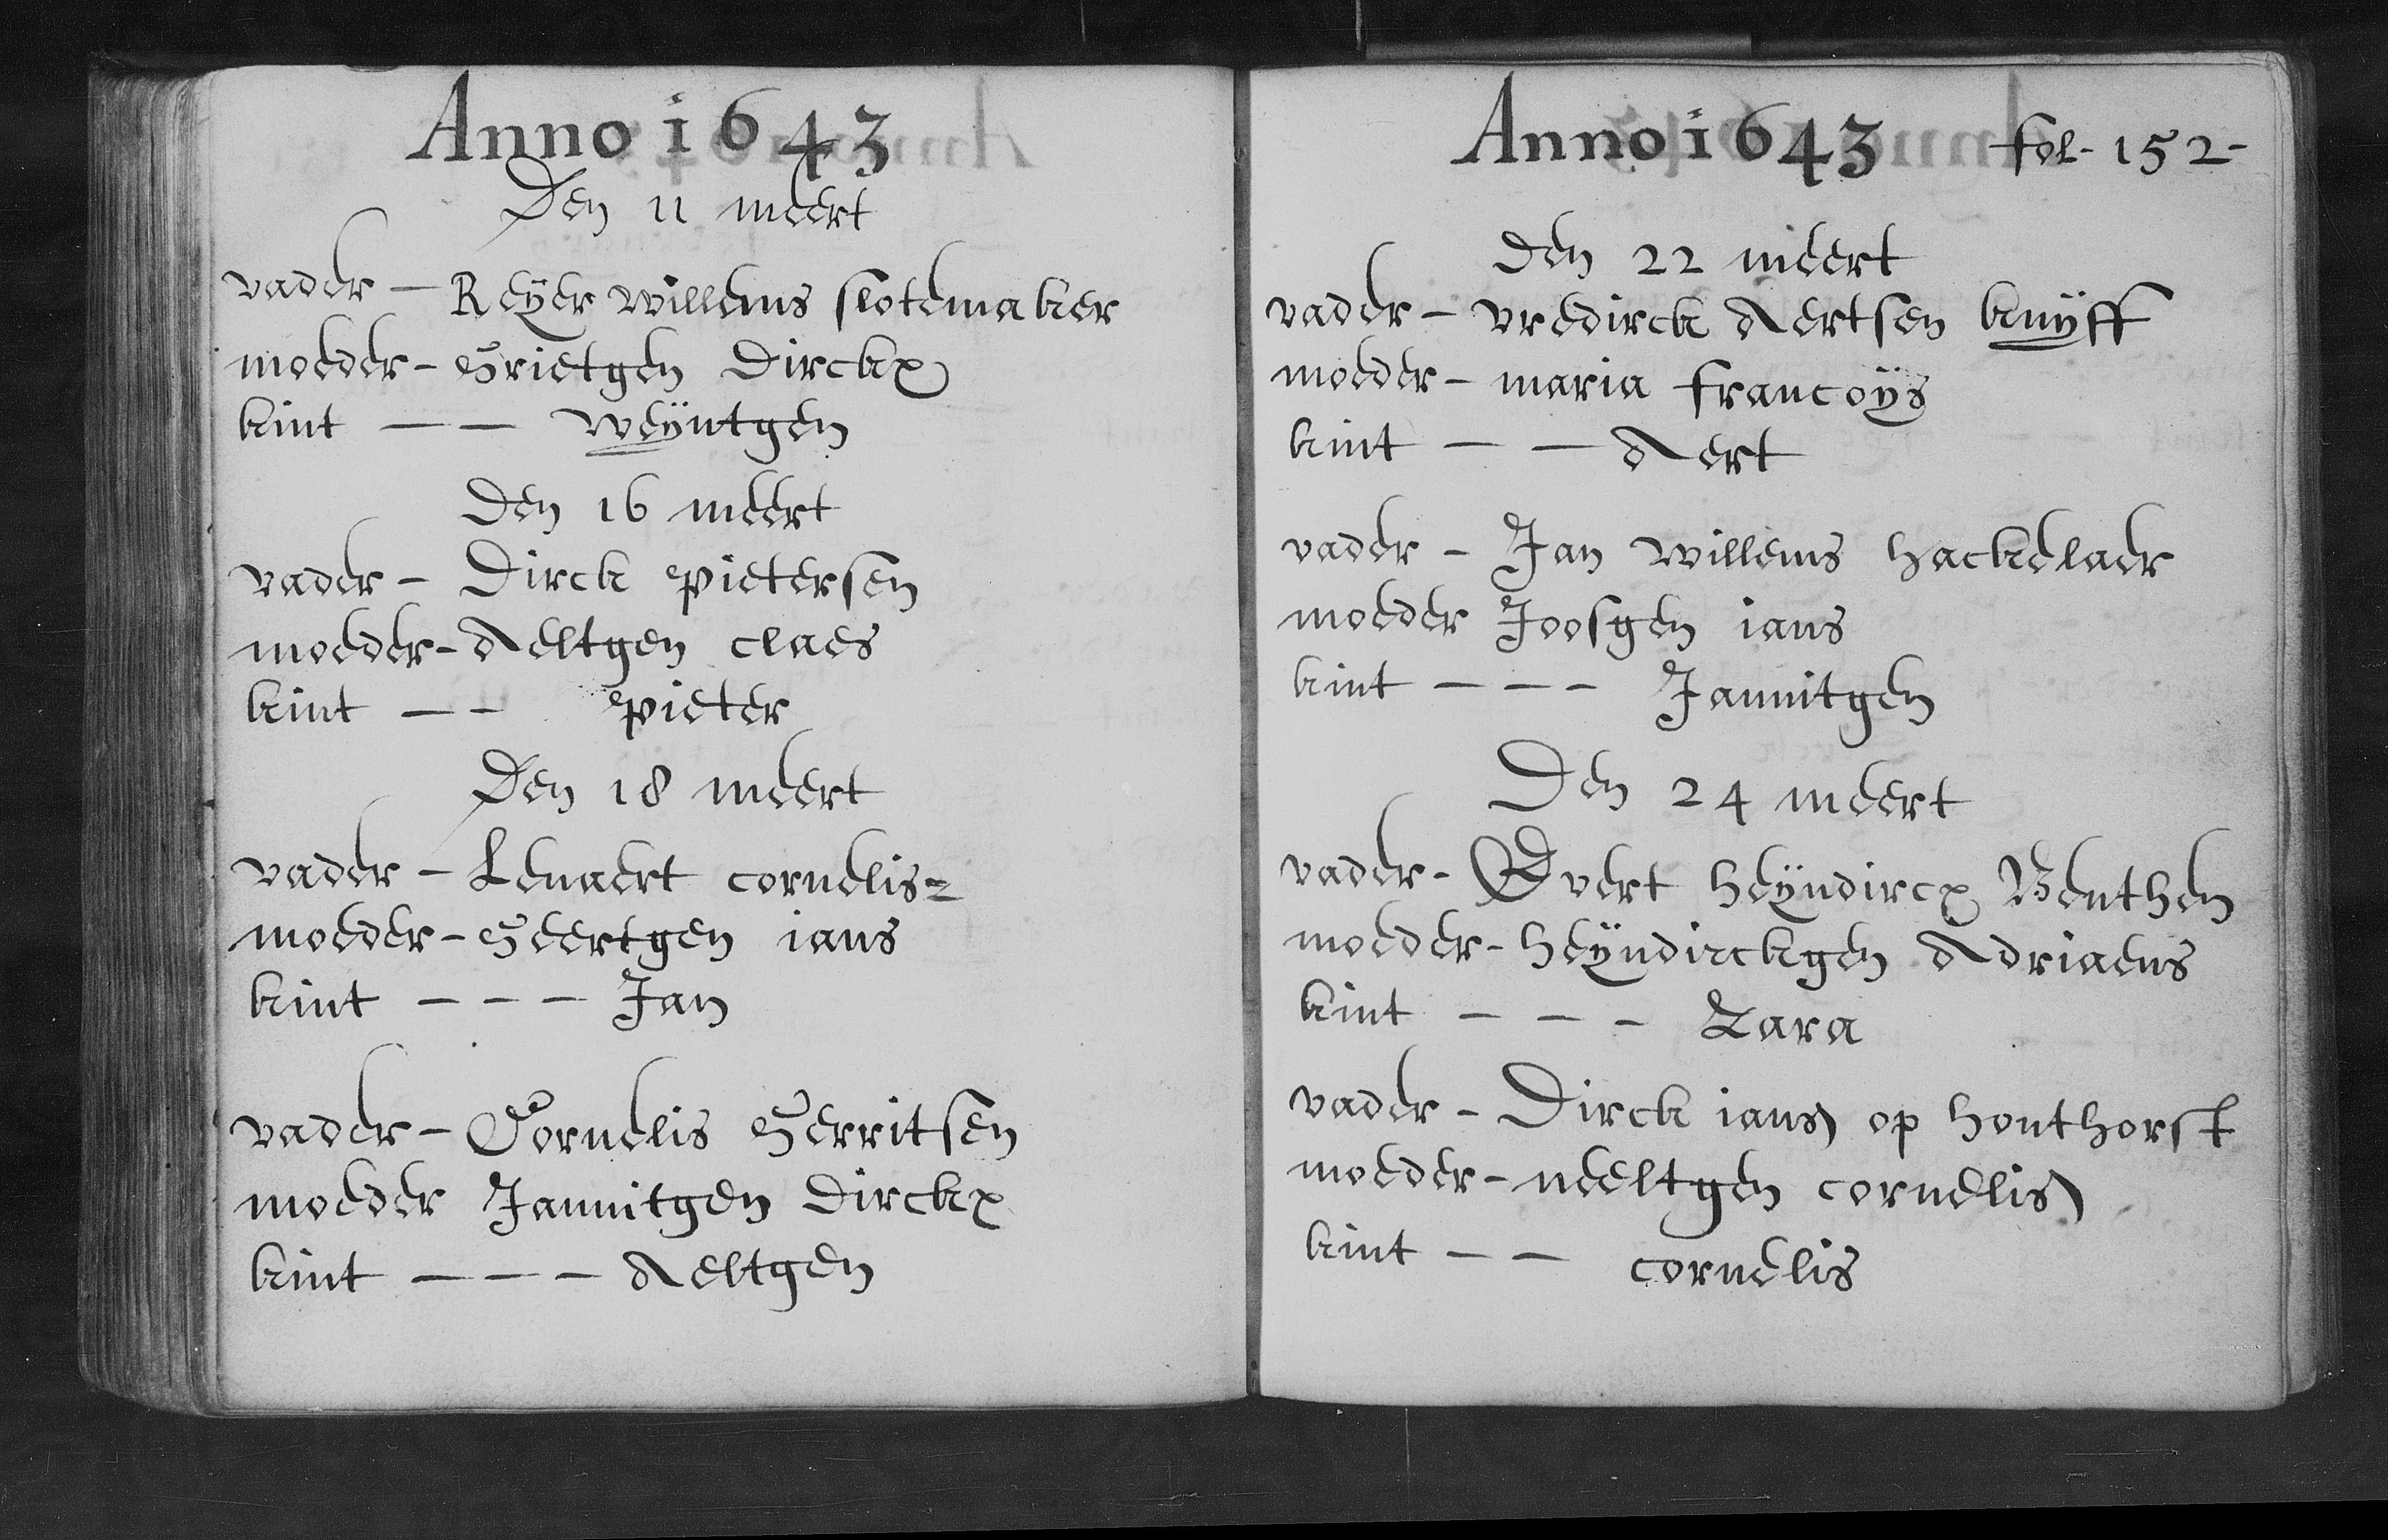 Anno 1643
Den 11 meert
vader - Reÿer willems slotemaker
moeder - Grietgen Dirckx
kint - - weÿntgen
Den 16 meert
vader - Dirck pietersen
moeder - Aeltgen claes
kint - - pieter
Den 18 meert
vader - Lenaert cornelis=
moeder - Geertgen ians
kint - - - Jan
vader - Cornelis Gerritsen
moeder Jannitgen Dirckx
kint - - - Aeltgen
Anno 1643 fol- 152-
Den 22 meert
vader - vredirck Aertsen knÿff
moeder - maria francoÿs
kint - - Aert
vader - Jan willems hackelaer
moeder Joosgen ians
kint - - - Jannitgen
Den 24 meert
vader - Evert heÿndircx Benthen
moeder - heÿndirckgen Adriaens
kint - - - Zara
vader - Dirck ians op honthorst
moeder - neeltgen cornelis
kint - - cornelis